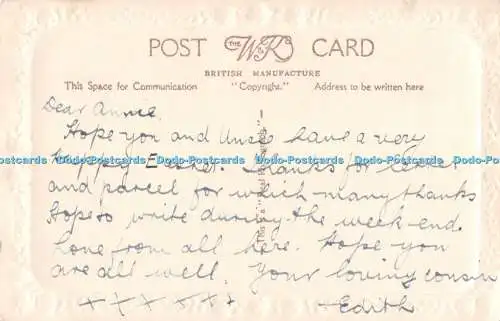 POST THE W&K CARD
BRITISH MANUFACTURE
This Space for Communication "Copyright." Address to be written here
Dear Annie.
Hope you and Uncle have a very
Happy Easter. Thanks for letter
and parcel for which many thanks
Hope to write during the week-end.
Love from all here. Hope you
are all well. Your loving cousin
xxx xxxx Edith
This is a "Real
Dodo-Postcards Dodo-Postcards Dodo-Postcards Dodo-Postcards Dodo-Postcards